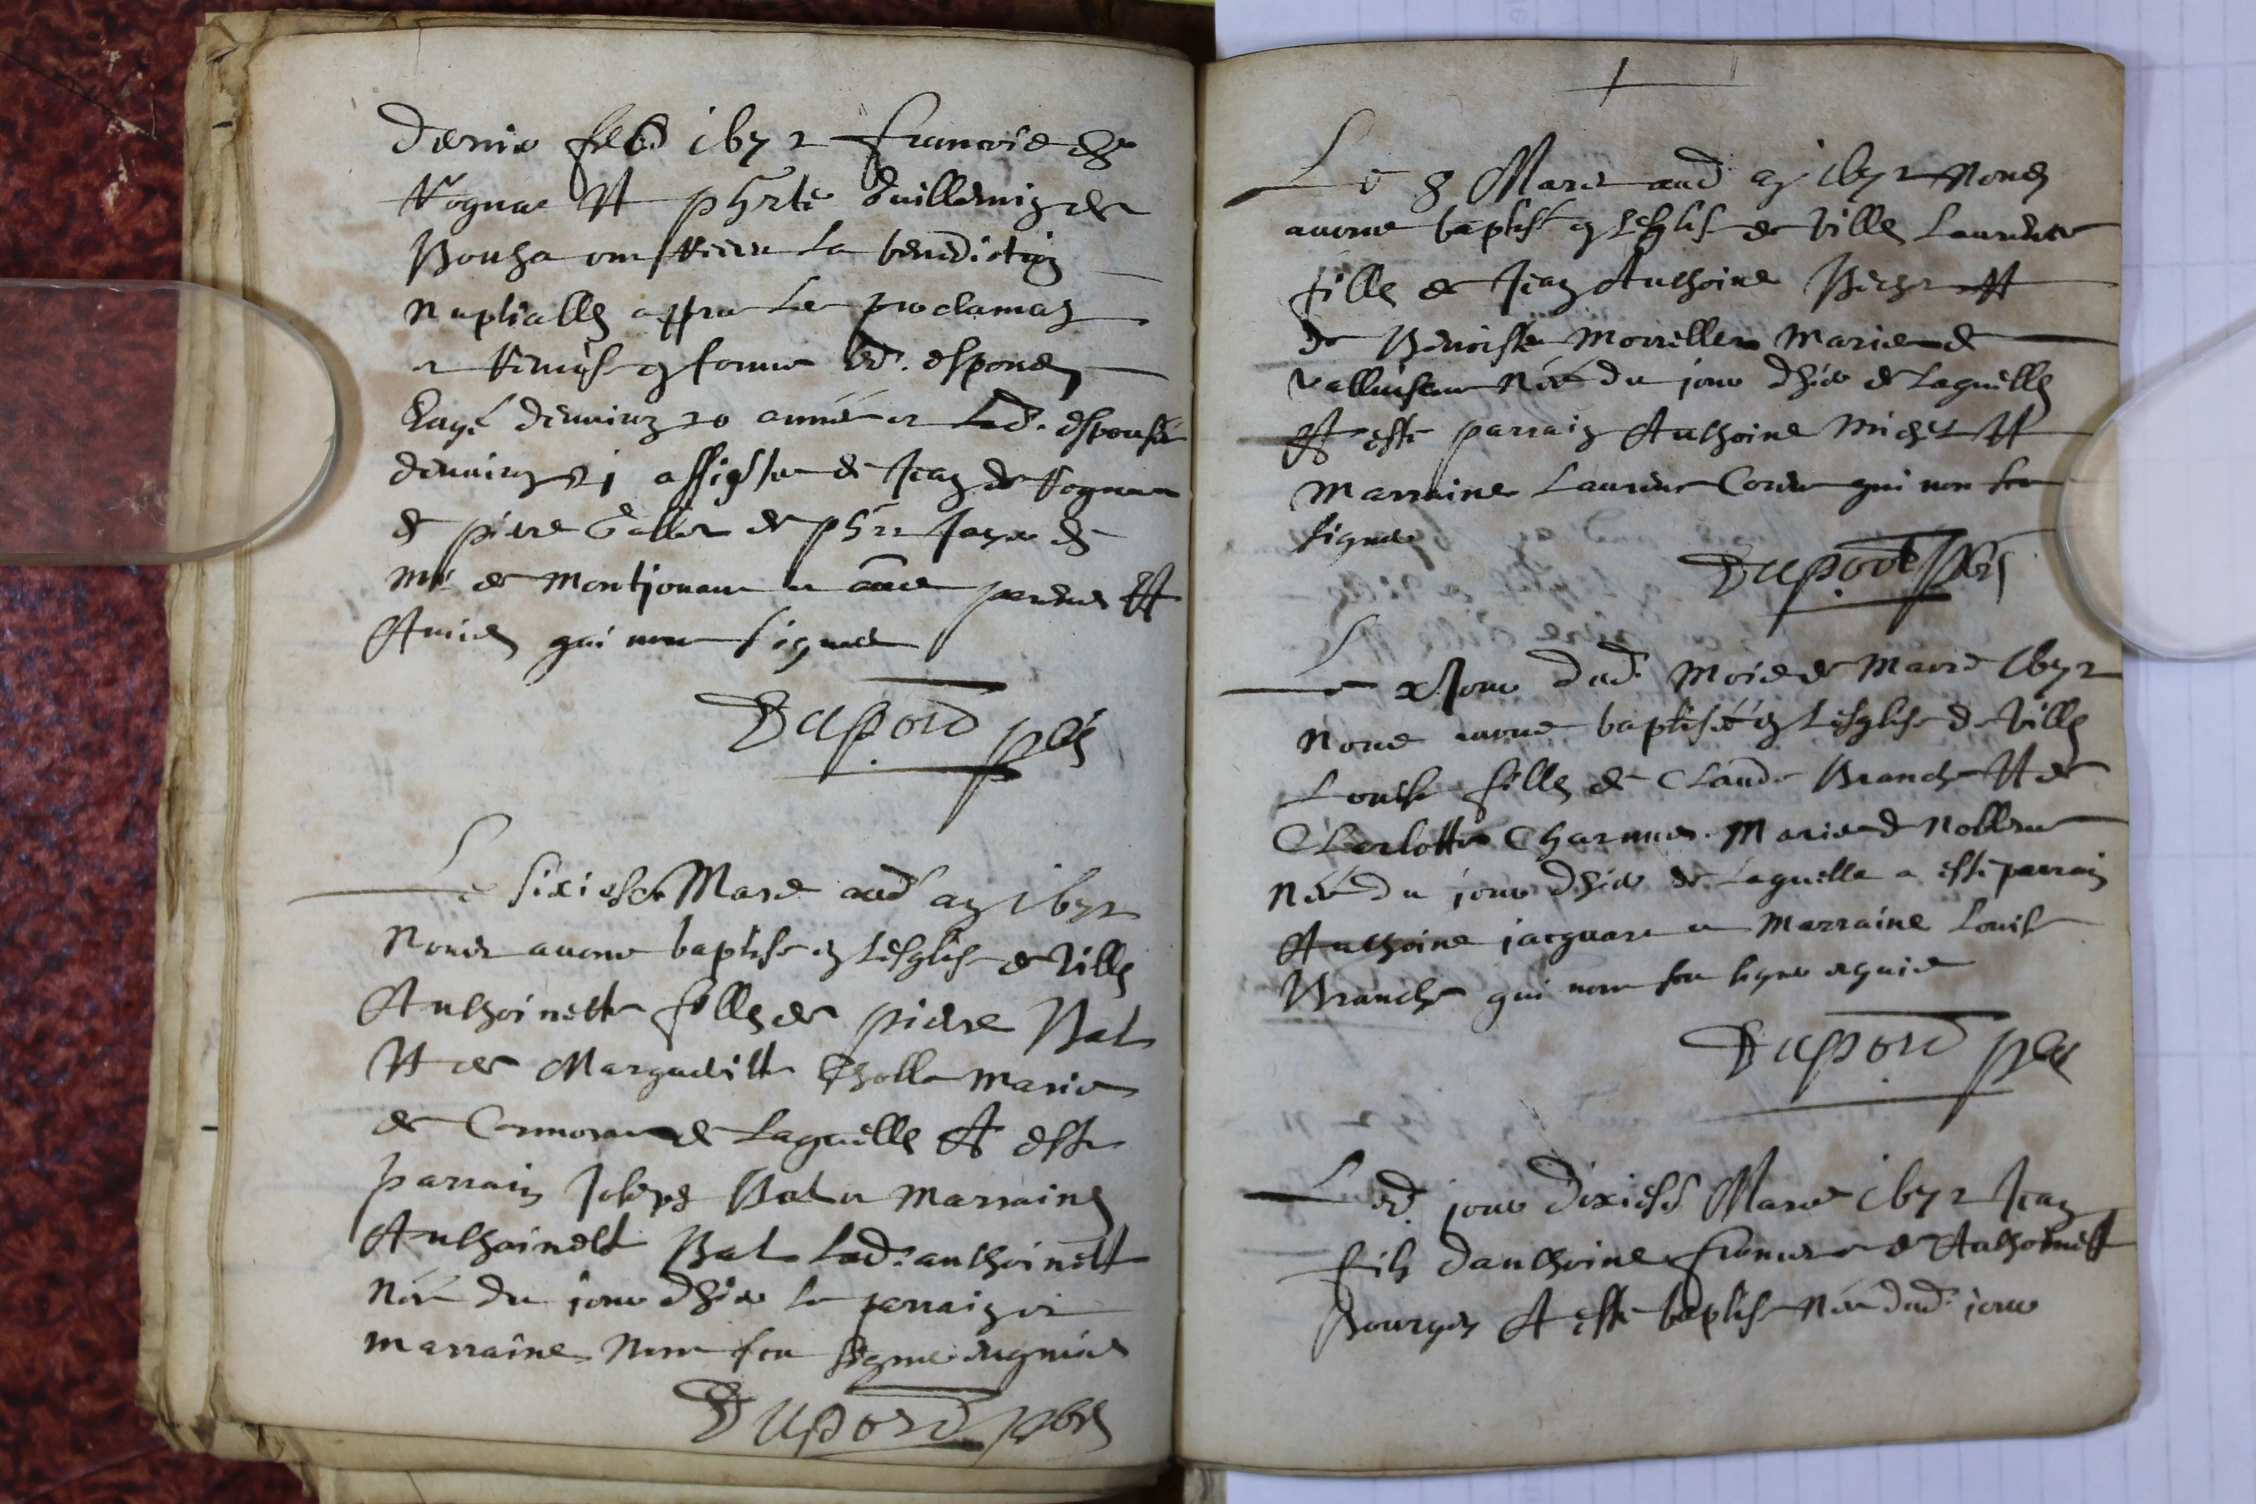 dernier feb 1672 francois de
Rognac Et phrte Guillermin de
Bouha ont Receu La benediction
Nuptialle appres Les proclamaõn
et Remise en forme led. espoux
Eagé denviron 20 année et Lad. espouse
denviron 21 assistes de Jean de Rognac
de piere Gallet de Jayr de
Mre de Montjouvan et aues parens Et
Amies qui nont signes
Dupord pbr
Le sixiesme Mars aud an 1672
Nous avons baptise en lesglise de Ville
Anthoinette fille de piere Bal
Et de Marguerite Tholle Maries
de Cormoran de Laquelle A este
parrain Joseph Bal et Marraine
Anthoinette Bal Lad. anthoinette
Née du jour dhier le parrain et
marraine Nont sceu signer requis
Dupord pbr
Le 8 Mars aud an 1672 Nous
avons baptise en lesglise de Ville Laurence
fille de Jean Anthoine Et
de Benoiste Morellet Maries de
Née du jour dhier de Laquelle
A este parrain Anthoine Michel Et
Marraine Laurence qui non sceu
signer
Dupord pbr
Le x Jour dud. Mois de Mars 1672
Nous avons baptisée en Lesglise de Ville
Louise fille de Claude Branche Et de
Charlotte Charmes Maries de Noblens
Née du jour dhier de Laquelle a este parrain
Anthoine jacquard et Marraine Louise
Branche qui nont sceu signer requis
Dupord pbr
Led. jour dixiesme Mars 1672 Jean
fils danthoine de Anthoinette
Bourgeois A este baptise Née dud. jour